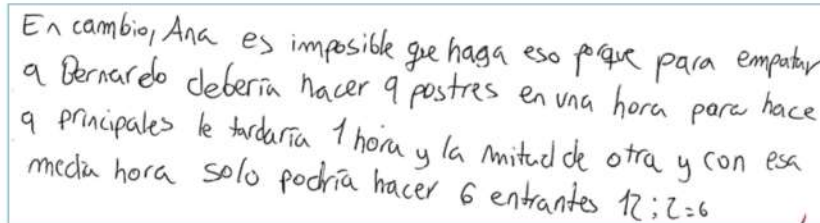 En cambio, Ana es imposible que haga eso porque para empatar
a Bernardo debería hacer 9 postres en una hora para hace
9 principales le tardaría 1 hora y la mitud de otra y con esa
media hora solo podría hacer 6 entrantes 12:2=6